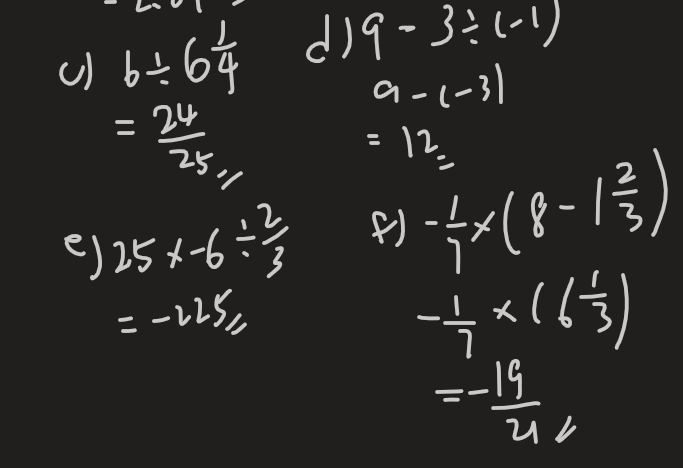 c) 6 ÷ 6 1/4
= 24/25
d) 9 - 3 ÷ (-1)
9 - (-3)
= 12
e) 25 × -6 ÷ 2/3
= -225
f) -1/7 × (8 - 1 2/3)
-1/7 × (6 1/3)
= -19/21